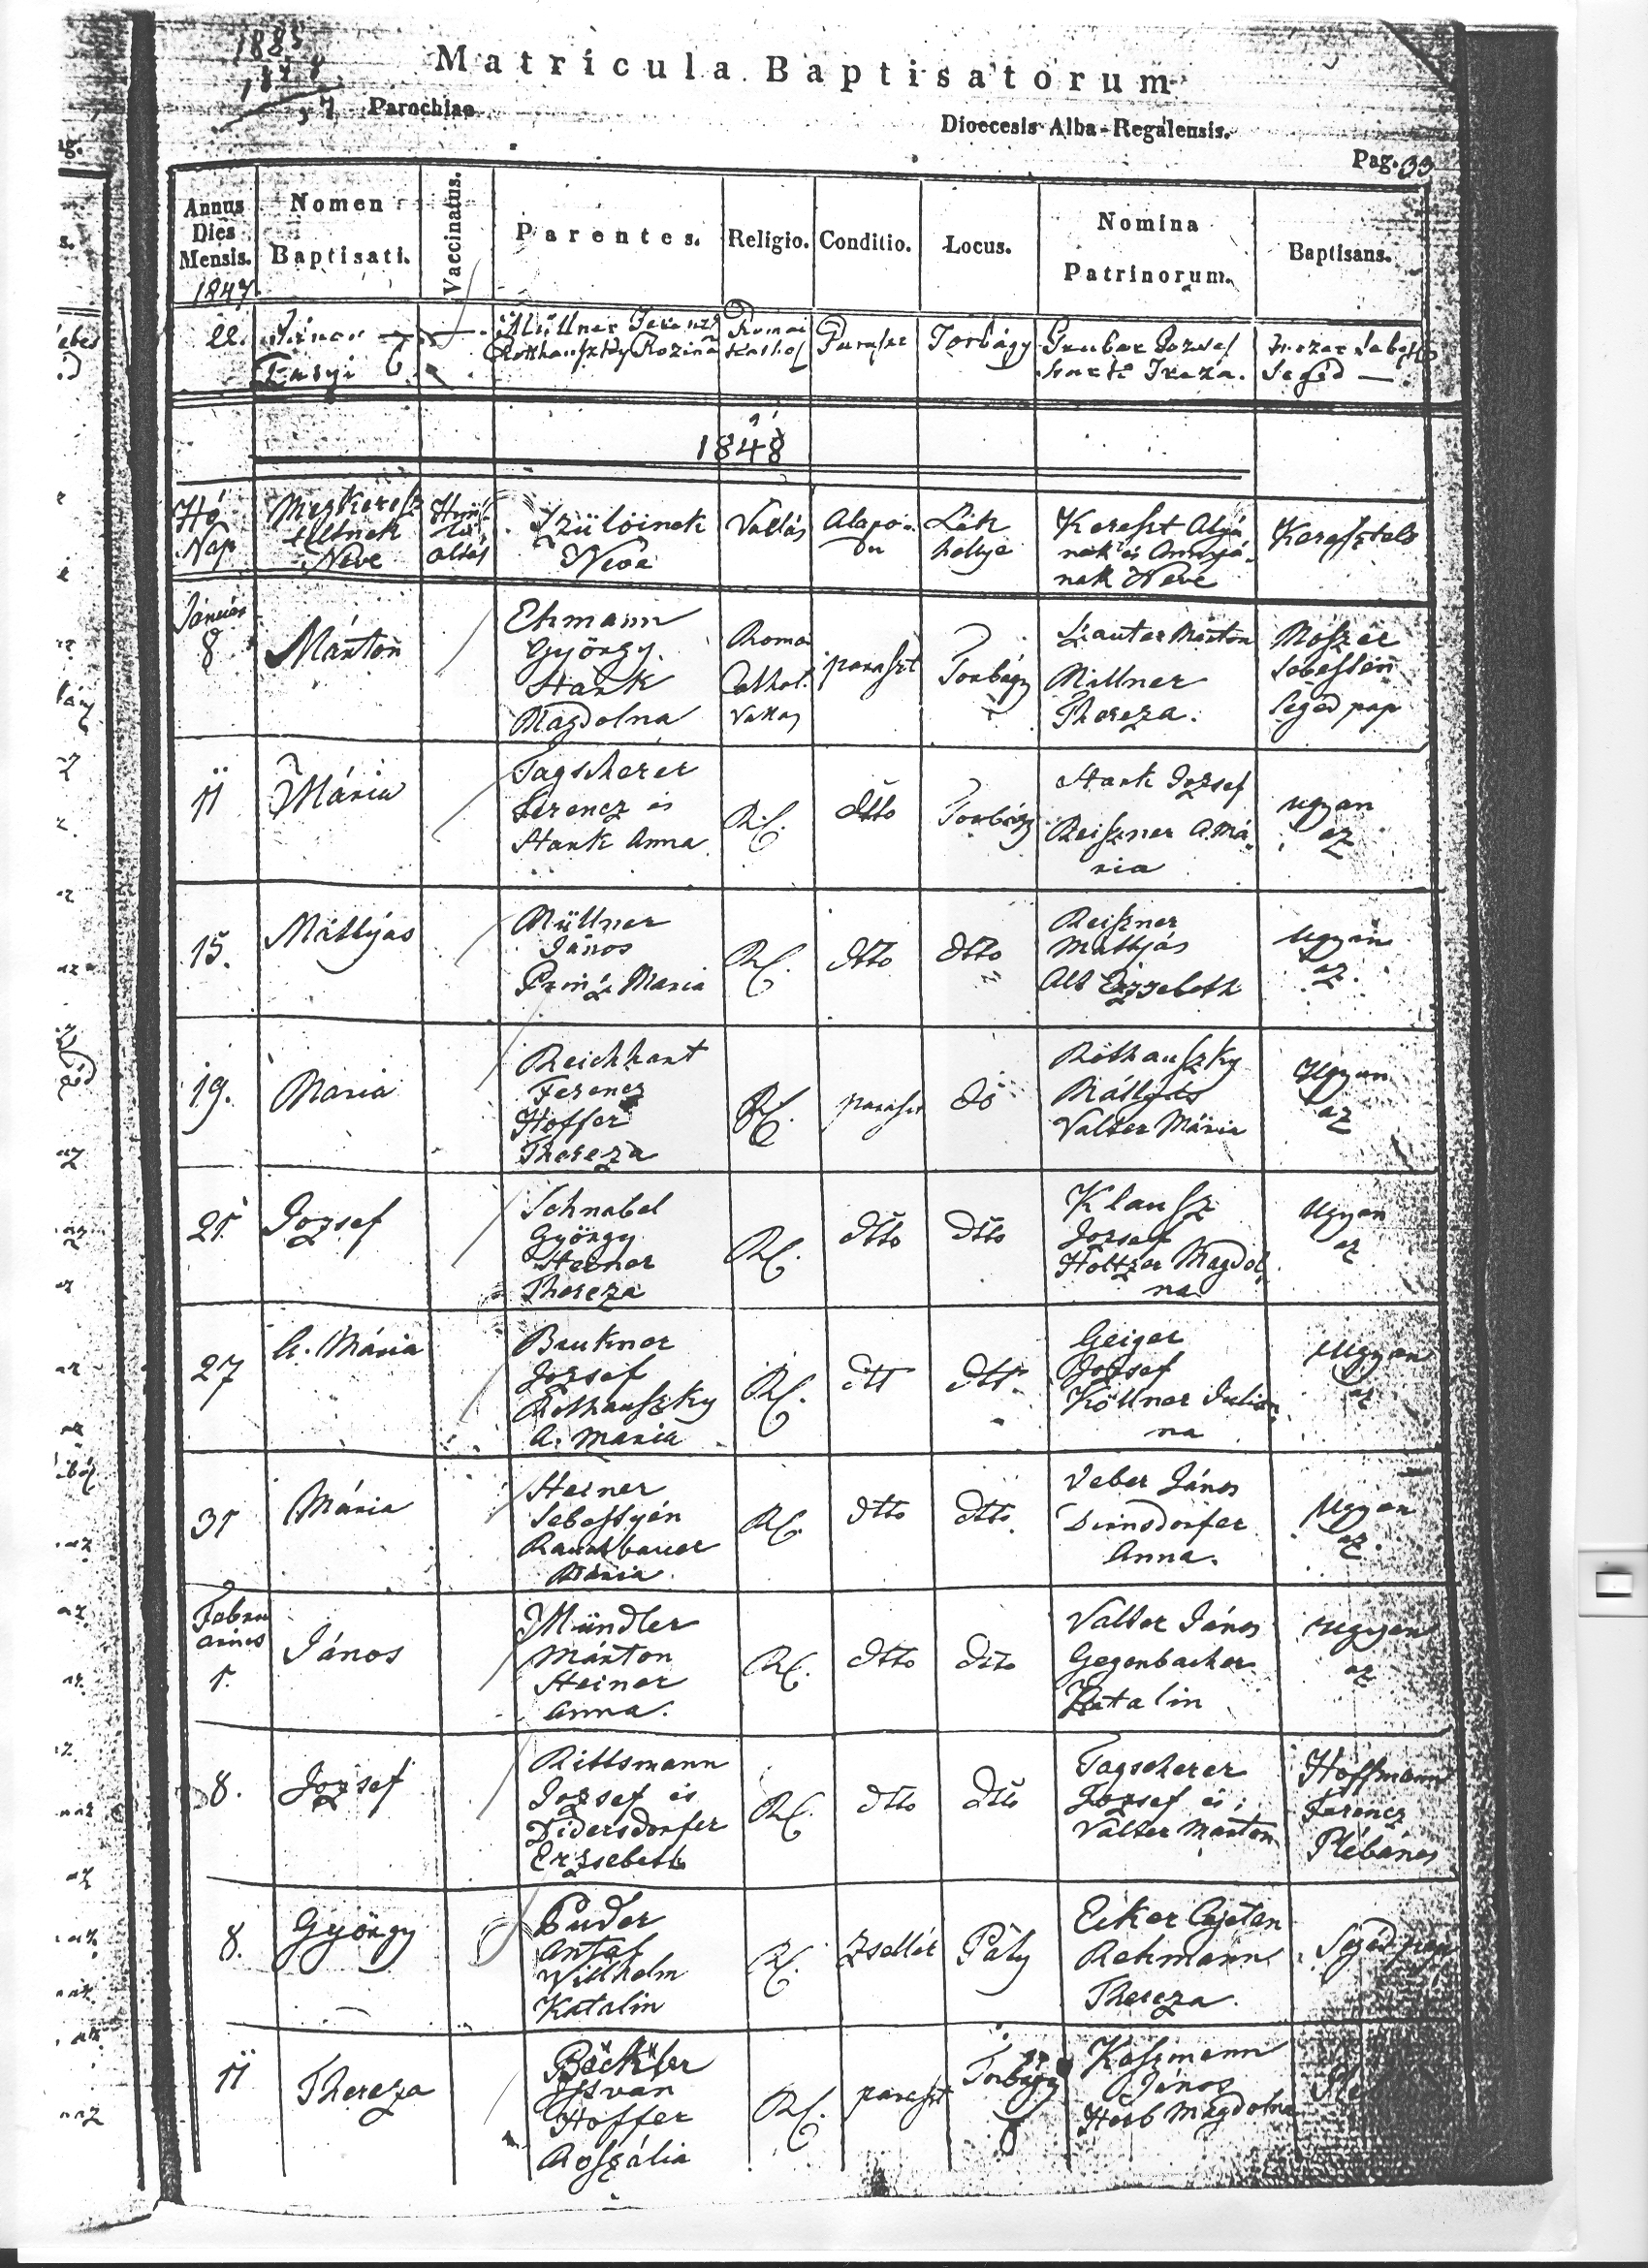 Matricula Baptisatorum
Parochiae
Dioecesis Alba-Regalensis.
Pag. 33
Annus Dies Mensis. 1847
Nomen Baptisati.
Vaccinatus.
Parentes.
Religio.
Conditio.
Locus.
Nomina Patrinorum.
Baptisans.
Müllner Ferencz
Rothauszky Rozina
Romai
Kathol
Torbágy
Gruber Jozsef
Segéd
1848
Hó Nap
Megkeresz
teltnek
Neve
Him
lő
oltás
Szülöinek
Neve
Vallás
Alapo
Lak
helye
Kereszt Atyá
nak és Annyá
nak Neve
Keresztelo
Január
8
Márton
Ehmann
György
Stark
Magdolna
Roma
Cathol.
Vallas
paraszt
Torbágy
Lauter Márton
Millner
Thereza.
Moszer
Sebestien
Segéd pap
11
Mária
Tagscherer
Ferencz és
Stark Anna
RC.
dtto
Torbágy
Stark Jozsef
Reiszner A. Má
ria
ugyan
az
15.
Máttyás
Müllner
János
Prinz Maria
RC.
dtto
dtto
Reiszner
Mattyás
Alt Erzsebeth
ugyan
az.
19.
Maria
Reichhart
Ferencz
Hoffer
Thereza
RC.
paraszt
do
Rothauszky
Máttyás
Valter Mária
Ugyan
az
21.
Jozsef
Schnabel
György
Steiner
Thereza
RC.
dtto
dtto
Klausz
Jozsef
Holtzer Magdol
na
Ugyan
az
27
A. Mária
Brukner
Jozsef
Rothauszky
A. Maria
RC.
dtt
dtt.
Geiger
Jozsef
Köllner Julian
na
Ugyan
az
31
Mária
Steiner
Sebestyén
Rauchbauer
Mária
RC.
dtto
dtto
Veber János
Dirnsdorfer
Anna.
Ugyan
az.
Febru
arius
1.
János
Mündler
Márton
Steiner
Anna.
RC.
dtto
dtto
Valter János
Gegenbacher
Katalin
ugyan
az
8.
Jozsef
Rittsmann
Jozsef és
Didersdorfer
Erzsebeth
RC.
dtto
dtto
Tagscherer
Jozsef és
Valter Márton
Hoffmann
Ferencz
Plébános
8.
György
Puder
Antal
Willhelm
Katalin
RC.
Zsellér
Páty
Eiker Cajetan
Rehmann
Thereza.
Segéd pap
11
Thereza
Böckler
Istvan
Hoffer
Roszália
RC.
paraszt
Torbágy
Koszmann
János
Herb Magdolna